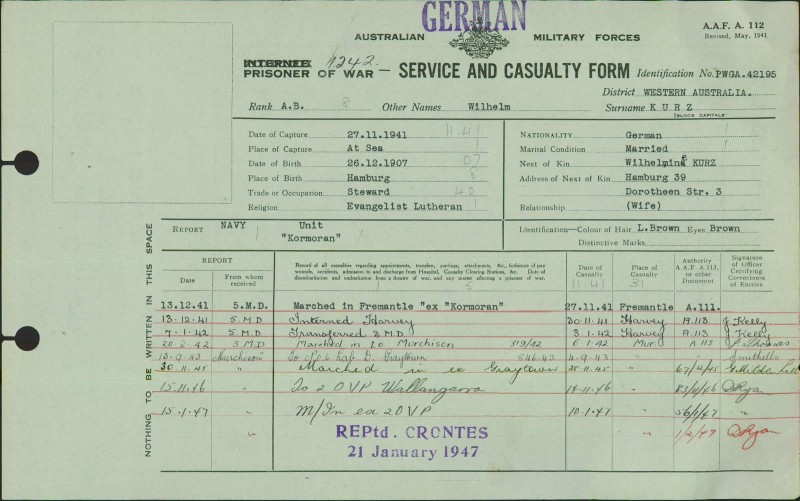 GERMAN
A.A.F. A. 112
Revised, May, 1941
AUSTRALIAN MILITARY FORCES
INTERNEE 1242.
PRISONER OF WAR — SERVICE AND CASUALTY FORM Identification No. PWGA.42195
District WESTERN AUSTRALIA.
Rank A.B. 8 Other Names Wilhelm Surname K U R Z
(BLOCK CAPITALS)
Date of Capture 27.11.1941 11.41
Place of Capture At Sea
Date of Birth 26.12.1907 07
Place of Birth Hamburg
Trade or Occupation Steward 40
Religion Evangelist Lutheran
NATIONALITY. German
Marital Condition Married
Next of Kin Wilhelmine KURZ
Address of Next of Kin Hamburg 39
Dorotheen Str. 3
Relationship (Wife)
REPORT NAVY Unit
"Kormoran"
Identification—Colour of Hair L.Brown Eyes Brown
Distinctive Marks
NOTHING TO BE WRITTEN IN THIS SPACE
REPORT
Date
From whom received
Record of all casualties regarding appointments, transfers, postings, attachments, &c., forfeiture of pay
wounds, accidents, admission to and discharge from Hospital, Casualty Clearing Stations, &c. Date of
disembarkation and embarkation from a theatre of war, and any matter affecting a prisoner of war.
Date of Casualty
11.41
Place of Casualty
31
Authority A.A.F. A 111, or other Document
Signature of Officer Certifying Correctness of Entries
13.12.41 5.M.D. Marched in Fremantle "ex "Kormoran" 27.11.41 Fremantle A.111.
13.12.41 5.M.D Interned Harvey 30.11.41 Harvey A.113 J Kelly
7.1.42 5.M.D. Transferred 3 M.D. 3.1.42 Harvey A.113 J Kelly
20.2.42 3 M.D Marched in to Murchison 6.1.42 Mur. A 113
13.9.43 Murchison To No. 6 Lab D. Graytown 4.9.43 " Smithells
30.11.45 Marched in ex Graytown 28.11.45 " 67/4/45
15.11.46 To 2 OVP Wallangarra 14.11.46 " Ryan
15.1.47 M/In ex 2 OVP 10.1.47 " 56/1/47 "
" " 1/2/47 Ryan
REPtd. CRONTES
21 January 1947